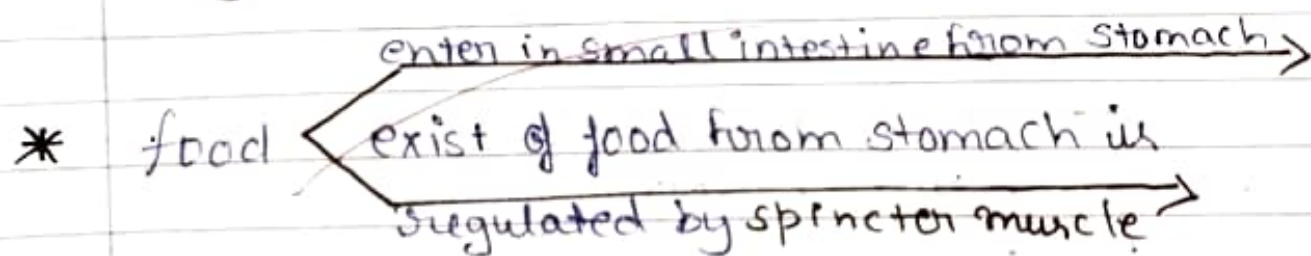 enter in small intestine from stomach
* food exist of food from stomach is
regulated by spincter muscle